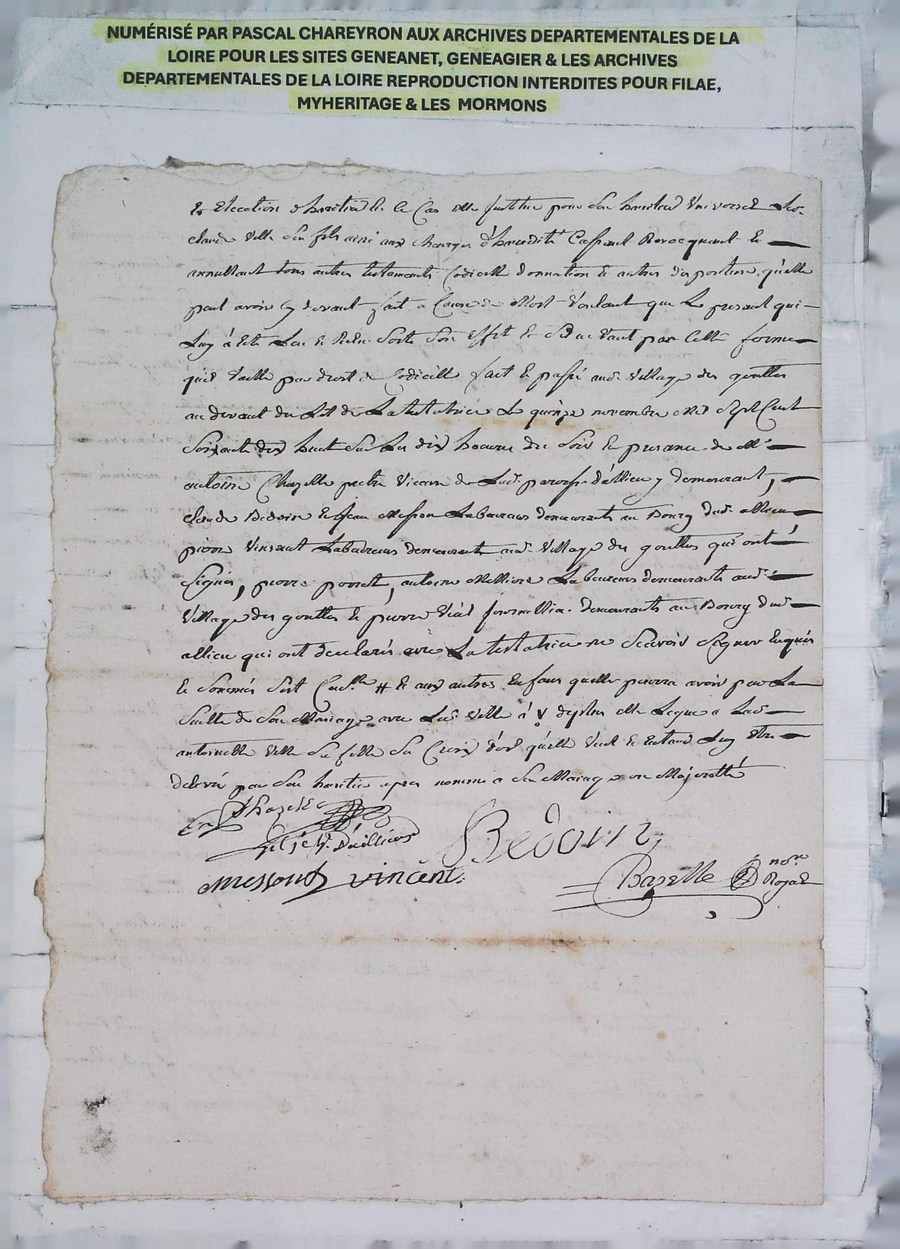 NUMÉRISÉ PAR PASCAL CHAREYRON AUX ARCHIVES DEPARTEMENTALES DE LA
LOIRE POUR LES SITES GENEANET, GENEAGIER & LES ARCHIVES
DEPARTEMENTALES DE LA LOIRE REPRODUCTION INTERDITES POUR FILAE,
MYHERITAGE & LES MORMONS
et Election d'heritier le Cas de Justice pour son heritier Universel
claude fils ainé aux charges d'heredité Cassant Revocquant et
annullant tous autres testaments Codicille donnation et autres disposition quelle
peut avoir Cy devant fait a Cause de Mort Voulant que Le present qui
Luy à eté Lu et Relu Sorte Son Effet et vant par Cette forme
vaille par droit de Codicille fait et passé aud. Village des gouttes
au devant du Lit de La testatrice Le quinze novembre Mil Sept Cent
Soixante dix huit Sur Les dix heures du Soir en presence de Mre
antoine Chazelle pretre Vicaire de Lad. paroisse d'allieu y demeurant,
claude Bedoin et Jean Messon Laboureurs demeurants au Bourg dud. allieu
pierre Vincent Laboureur demeurant aud. Village des gouttes qui ont
Signés, pierre poncet, antoine Melliere Laboureurs demeurants aud.
Village des gouttes et pierre Vial demeurants au Bourg dud.
allieu qui ont declarés avec La testatrice ne Scavoir Signer Enquis
et Sommés # et aux autres Enfans quelle pourra avoir par La
Suitte de Son Mariage avec Led. de plus elle Legue a Lad.
antoinette Sa fille Sa Croix d'or qu'elle Veut et Entand Luy Etre
delivré par Son heritier apres nommé a Son Mariage ou Majorité
Chazelle
Bedoin
messon vincent
Bazelle nore
Royal